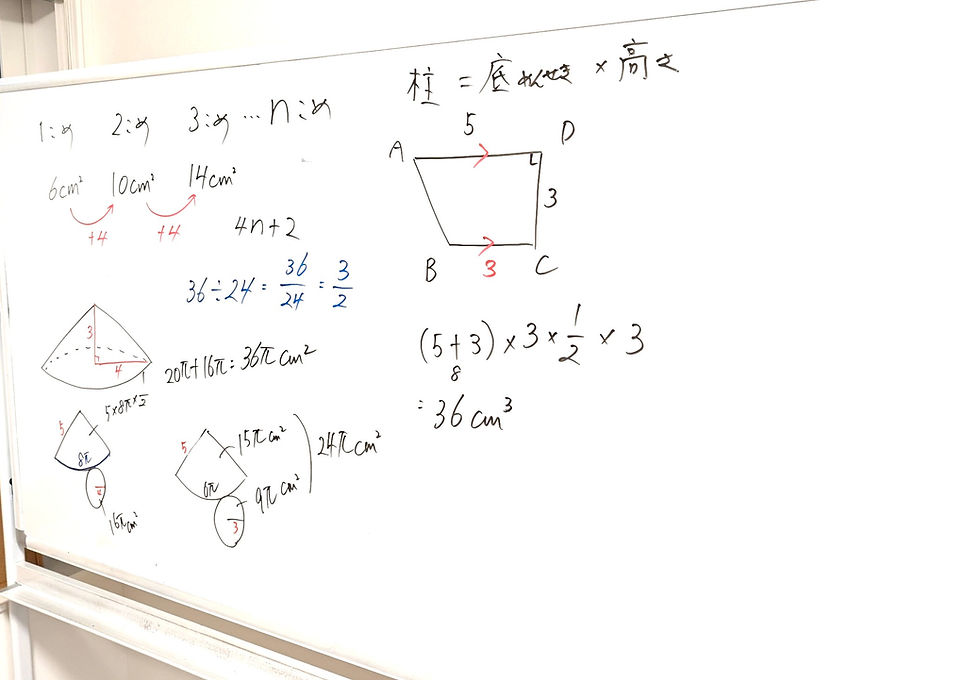 1:め 2:め 3:め … n:め
6cm² 10cm² 14cm²
+4 +4
4n+2
36÷24 = 36/24 = 3/2
3
4
20π+16π = 36π cm²
5×8π×1/2
5
8π
4
16π cm²
5
15π cm²
24π cm²
6π
9π cm²
3
柱 = 底めんせき × 高さ
5
A D
3
B 3 C
(5+3) × 3 × 1/2 × 3
8
= 36 cm³